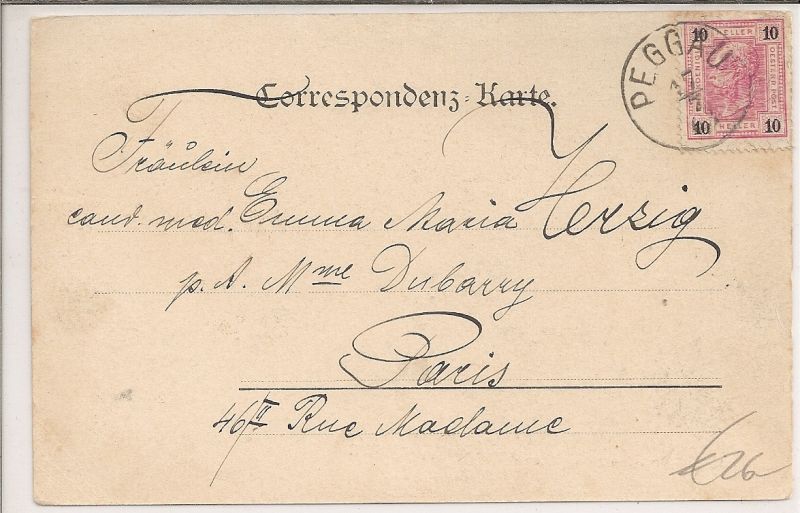 10 HELLER 10
PEGGAU
10 HELLER 10
Correspondenz-Karte.
Fräulein
cand. med. Emma Maria Herzig
p. A. Mme Dubarry
Paris
46II Rue Madame